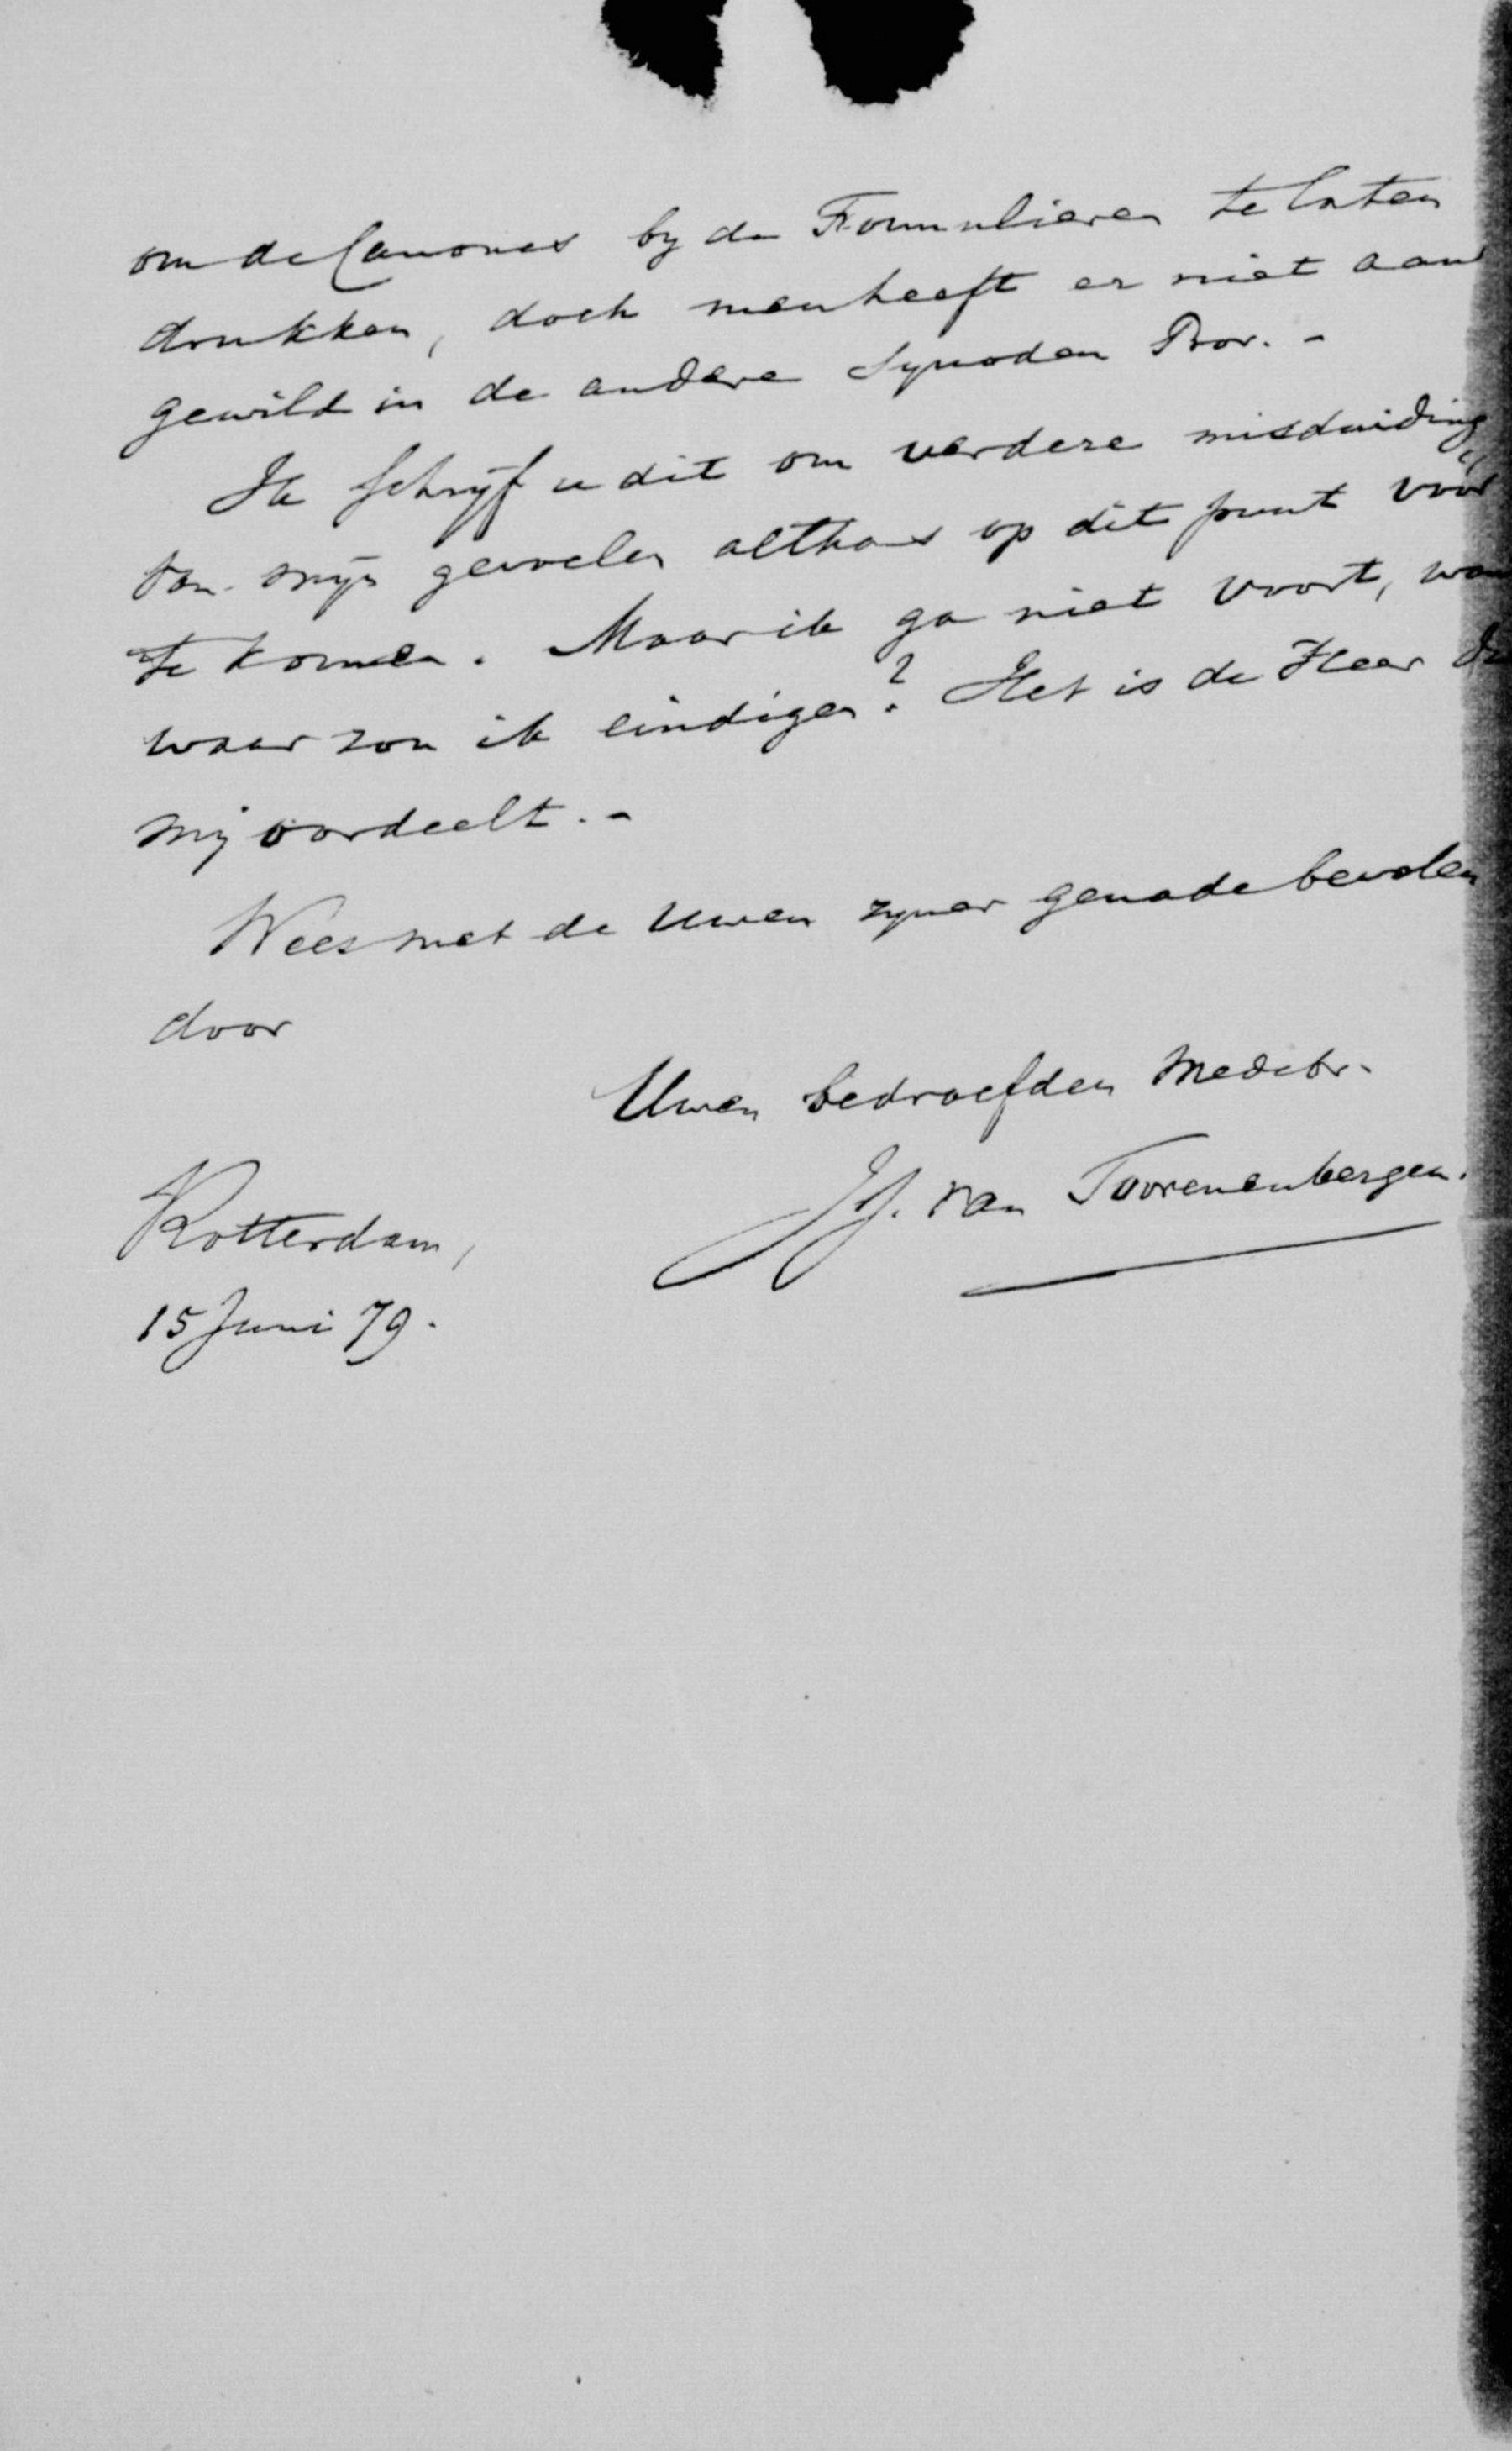 om de Canones by de Formulieren te laten
drukken, doch men heeft er niet aan
gewild in de andere Synoden Prov. -
Ik schryf u dit om verdere misduiding
van mijn gevoelen althans op dit punt vóór
te komen. Maar ik ga niet voort,
waar zou ik eindigen? Het is de Heer
mij oordeelt. -
Wees met de Uwen zyner genade bevolen
door
Uwen bedroefden Medebr.
JJ. van Toorenenbergen.
Rotterdam,
15 Juni 79.